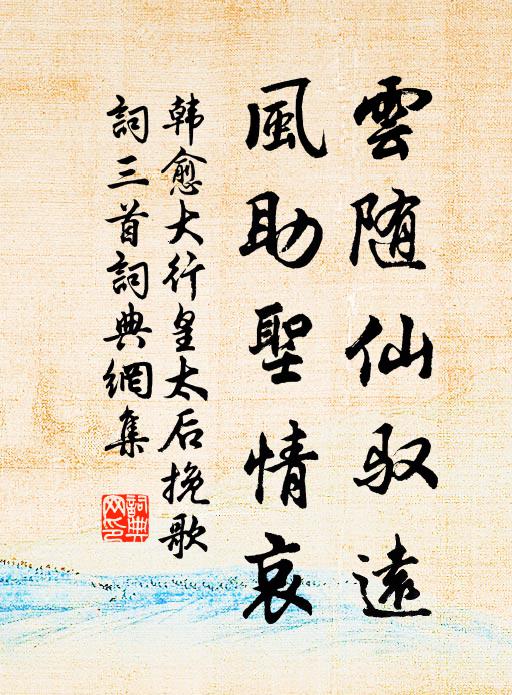 雲随仙驭遠
風助聖情哀
韩愈大行皇太后挽歌
詞三首詞典網集
詞典网印